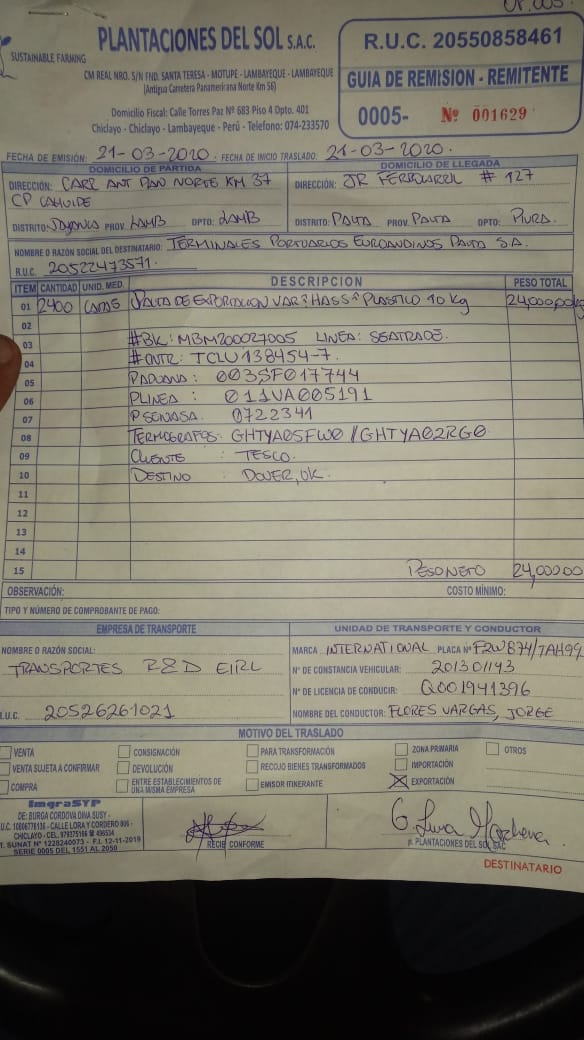 SUSTAINABLE FARMING
PLANTACIONES DEL SOL S.A.C.
CM REAL NRO. S/N FND. SANTA TERESA - MOTUPE - LAMBAYEQUE - LAMBAYEQUE
(Antigua Carretera Panamericana Norte Km 56)
Domicilio Fiscal: Calle Torres Paz Nº 683 Piso 4 Dpto. 401
Chiclayo - Chiclayo - Lambayeque - Perú - Telefono: 074-233570
R.U.C. 20550858461
GUIA DE REMISION - REMITENTE
0005- Nº 001629
FECHA DE EMISIÓN: 21-03-2020. FECHA DE INICIO TRASLADO: 21-03-2020.
DOMICILIO DE PARTIDA
DIRECCIÓN: CARR ANT PAN NORTE KM 37
CP CAHUIDE
DISTRITO: PROV. LAMB DPTO: LAMB
DOMICILIO DE LLEGADA
DIRECCIÓN: JR FERROCARRIL # 127
DISTRITO: PAITA PROV. PAITA DPTO: PIURA.
NOMBRE O RAZÓN SOCIAL DEL DESTINATARIO: TERMINALES PORTUARIOS EUROANDINOS PAITA SA.
R.U.C. 20522473571.
ITEM CANTIDAD UNID. MED. DESCRIPCION PESO TOTAL
01 2400 CAJAS PALTA DE EXPORTACION VAR: HASS PLASTICO 10 kg 24,000.00 kg
02
03 #BK: MBM200027005 LINEA: SEATRADE.
04 #CNTR: TCLU138454-7.
05 PADUANA: 003SF017744
06 PLINEA: 011VA005191
07 PSENASA. 0722341
08 TERMOGRAFOS: GHTYA05FW0 // GHTYA02RG0
09 CLIENTE : TESCO.
10 DESTINO : DOVER, UK.
11
12
13
14
15 PESO NETO 24,000.00
OBSERVACIÓN: COSTO MÍNIMO:
TIPO Y NÚMERO DE COMPROBANTE DE PAGO:
EMPRESA DE TRANSPORTE
NOMBRE O RAZÓN SOCIAL:
TRANSPORTES R&D EIRL
R.U.C. 20526261021
UNIDAD DE TRANSPORTE Y CONDUCTOR
MARCA INTERNATIONAL PLACA Nº F2W874/TAH99
Nº DE CONSTANCIA VEHICULAR: 201301143
Nº DE LICENCIA DE CONDUCIR: Q001941396
NOMBRE DEL CONDUCTOR: FLORES VARGAS, JORGE
MOTIVO DEL TRASLADO
VENTA CONSIGNACIÓN PARA TRANSFORMACIÓN ZONA PRIMARIA OTROS
VENTA SUJETA A CONFIRMAR DEVOLUCIÓN RECOJO BIENES TRANSFORMADOS IMPORTACIÓN
COMPRA ENTRE ESTABLECIMIENTOS DE UNA MISMA EMPRESA EMISOR ITINERANTE EXPORTACIÓN
ImgraSYP
DE: BURGA CORDOVA DINA SUSY -
U.C. 10806776136 - CALLE LORA Y CORDERO 806 -
CHICLAYO - CEL. 979375186
T. SUNAT Nº 1228240073 - F.I. 12-11-2019
SERIE 0005 DEL 1551 AL 2050
RECIBÍ CONFORME
p. PLANTACIONES DEL SOL SAC
DESTINATARIO